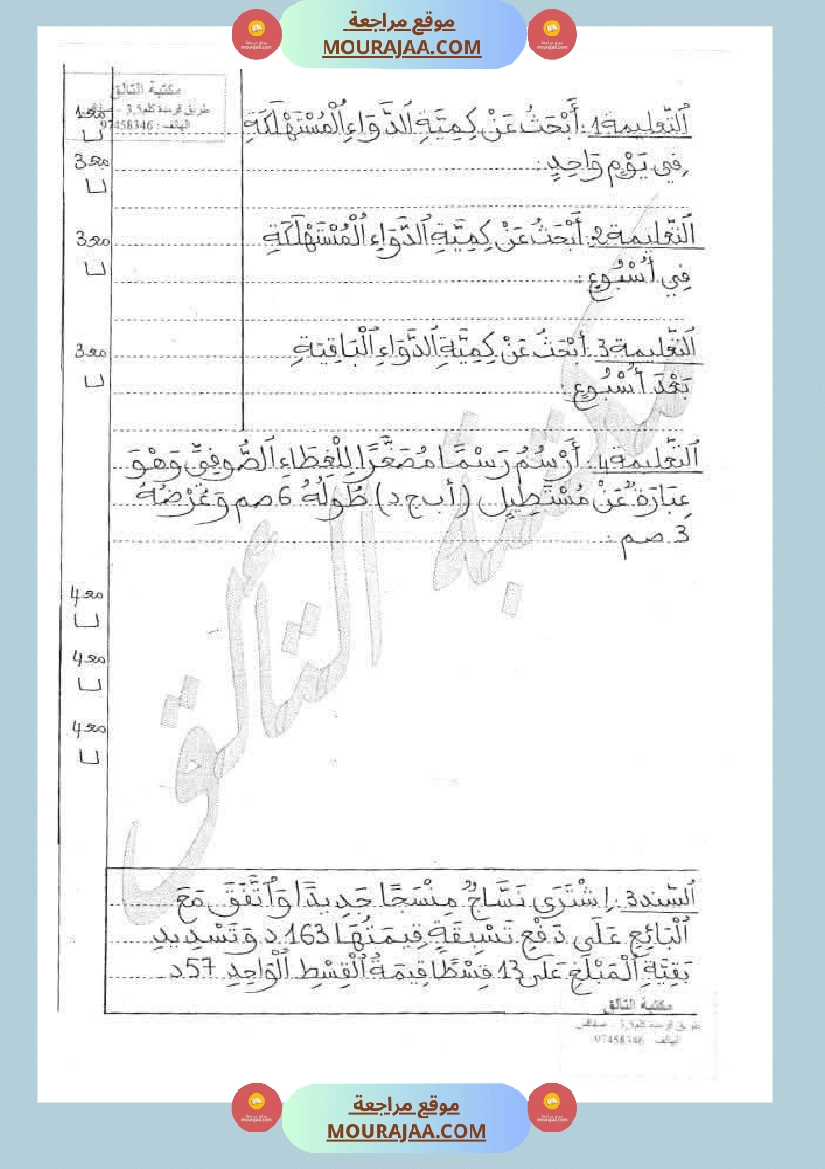 موقع مراجعة
MOURAJAA.COM
مكتبة التالق
طريق قرمدة كلم 3,5 - صفاقس
الهاتف : 97458346
اَلتَّعْلِيمَة 1: أَبْحَثُ عَنْ كِمِيَّةِ اَلدَّوَاءِ اَلْمُسْتَهْلَكَةِ
فِي يَوْمٍ وَاحِدٍ:
مع 1
مع 3
اَلتَّعْلِيمَة 2: أَبْحَثُ عَنْ كِمِيَّةِ اَلدَّوَاءِ اَلْمُسْتَهْلَكَةِ
فِي أُسْبُوعٍ:
مع 3
اَلتَّعْلِيمَة 3: أَبْحَثُ عَنْ كِمِيَّةِ اَلدَّوَاءِ اَلْبَاقِيَةِ
بَعْدَ أُسْبُوعٍ:
مع 3
اَلتَّعْلِيمَة 4: أَرْسُمُ رَسْمًا مُصَغَّرًا لِلْغِطَاءِ اَلصُّوفِيِّ وَهْوَ
عِبَارَة عَنْ مُسْتَطِيلٍ (أ ب ج د) طُولُهُ 6 صم وَعَرْضُهُ
3 صم :
مع 4
مع 4
مع 4
مكتبة التالق
اَلسَّند 3: اِشْتَرَى نَسَّاجٌ مِنْسَجًا جَدِيدًا وَاَتَّفَقَ مَعَ
اَلْبَائِعِ عَلَى دَفْعِ تَسْبِقَةٍ قِيمَتُهَا 163 د وَتَسْدِيدِ
بَقِيَّةِ اَلْمَبْلَغِ عَلَى 13 قِسْطًا قِيمَةُ اَلْقِسْطِ اَلْوَاحِدِ 57 د
مكتبة التالق
طريق قرمدة كلم 3,5 - صفاقس
الهاتف : 97458346
موقع مراجعة
MOURAJAA.COM